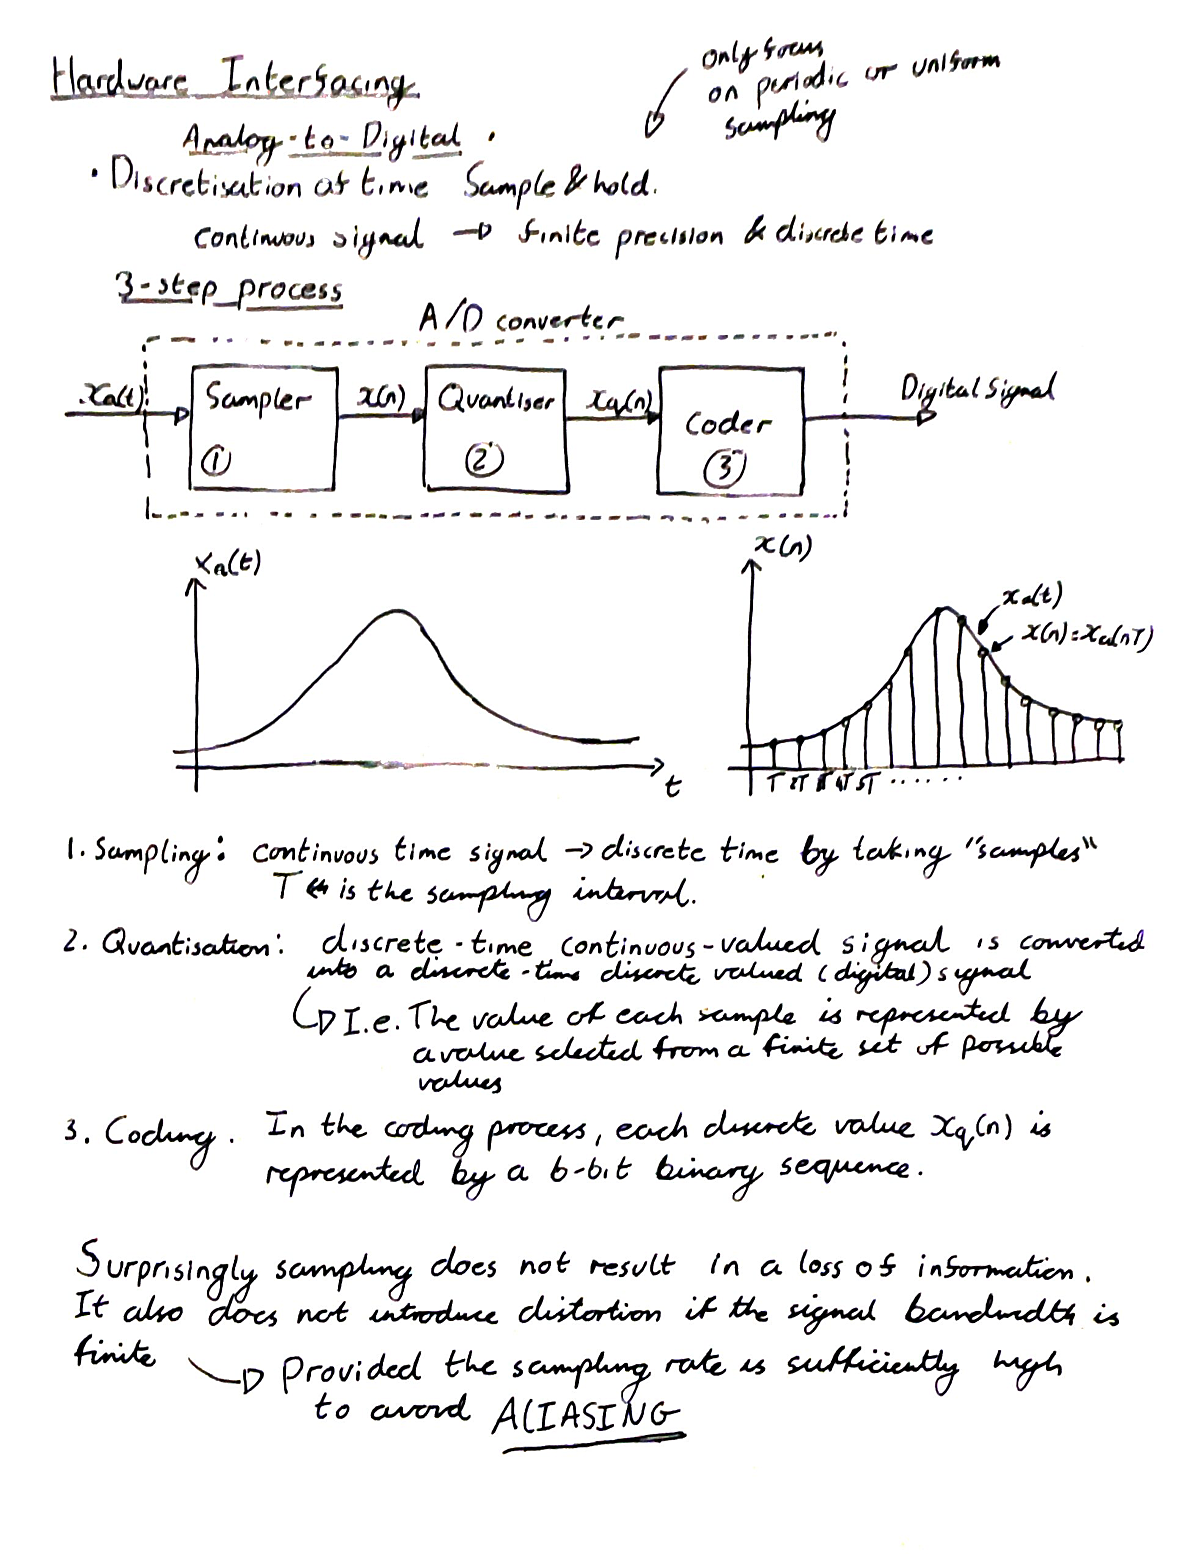 Hardware Interfacing
only focus
on periodic or uniform
sampling
Analog-to-Digital .
· Discretisation of time Sample & hold.
continuous signal → finite precision & discrete time
3-step process
A/D converter
xa(t) Sampler x(n) Quantiser xq(n) Coder Digital Signal
① ② ③
xa(t)
t
x(n)
xa(t)
x(n)=xa(nT)
T 2T 3T 4T 5T .......
1. Sampling: continuous time signal → discrete time by taking "samples"
T ↔ is the sampling interval.
2. Quantisation: discrete-time continuous-valued signal is converted
into a discrete-time discrete valued (digital) signal
↳ I.e. The value of each sample is represented by
a value selected from a finite set of possible
values
3. Coding. In the coding process, each discrete value xq(n) is
represented by a b-bit binary sequence.
Surprisingly sampling does not result in a loss of information.
It also does not introduce distortion if the signal bandwidth is
finite
→ Provided the sampling rate is sufficiently high
to avoid ALIASING